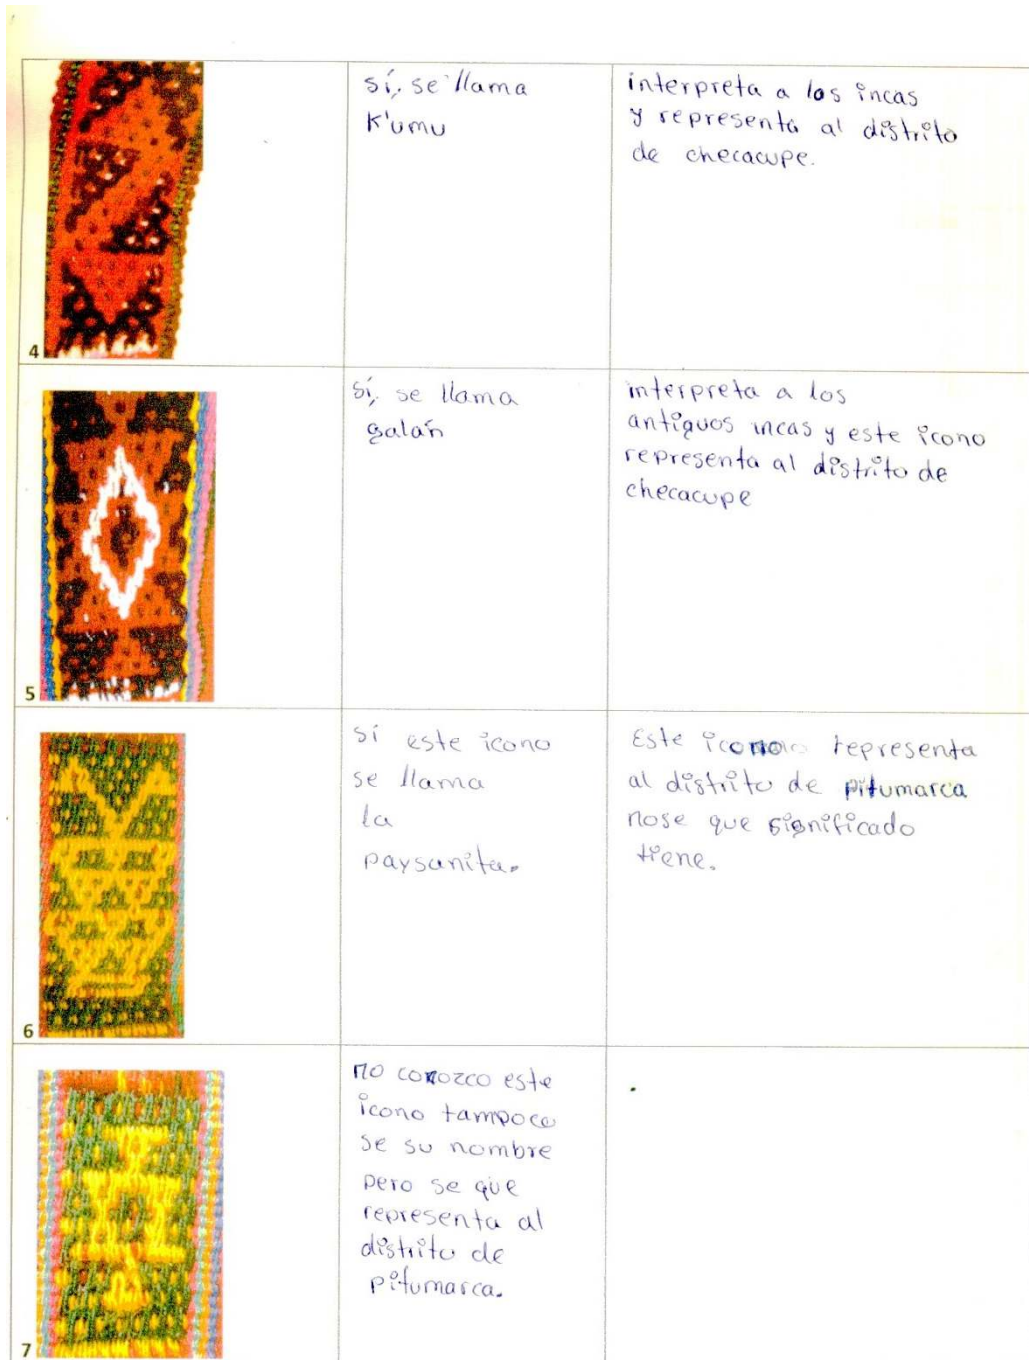 4
sí, se llama
K'umu
interpreta a los incas
y representa al distrito
de checacupe.
5
sí, se llama
galán
interpreta a los
antiguos incas y este icono
representa al distrito de
checacupe
6
sí este icono
se llama
la
paysanita.
Este icono representa
al distrito de pitumarca
nose que significado
tiene.
7
no conozco este
icono tampoco
se su nombre
pero se que
representa al
distrito de
pitumarca.